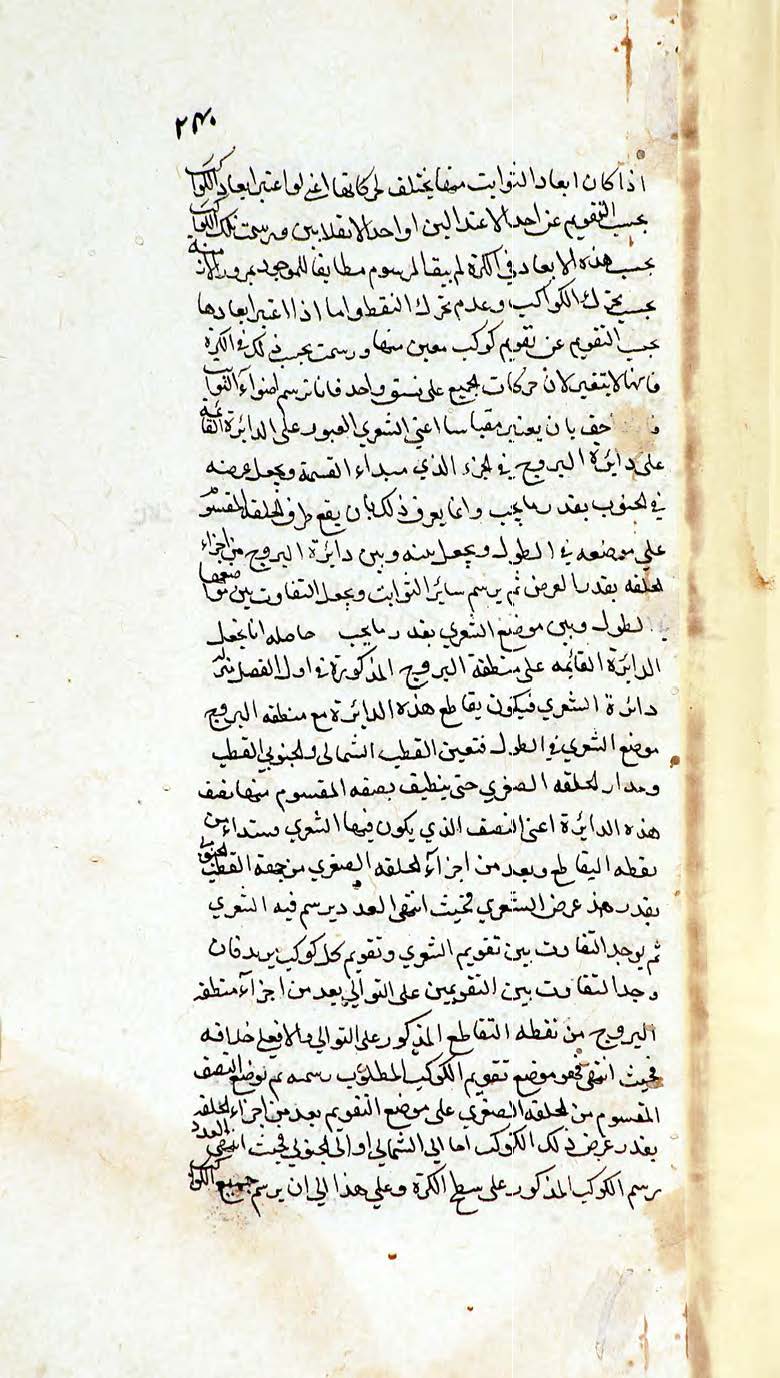 ٢٣٠
اذا كان ابعاد الثوابت منها يختلف لحركاتها اعني لو اعتبر ابعاد الكواكب
بحسب التقويم عن احد الاعتدالين او احد الانقلابين ورسمت تلك الكواكب
بحسب هذه الابعاد في الكرة لم يبق المرسوم مطابقا للموجود بمرور الازمنة
بحسب تحرك الكواكب وعدم تحرك النقط واما اذا اعتبر ابعادها
بحسب التقويم عن تقويم كوكب معين منها ورسمت بحسب ذلك في الكرة
فانها لا يتغير لان حركات الجميع على نسق واحد فانا نرسم اضواء الثوابت
بان يعتبر مقياسا اعني الشعري العبور على الدائرة القائمة
على دائرة البروج في الجزء الذي مبداء القسمة ويجعل عرضه
في الجنوب بقدر ما يجب وانما يعرف ذلك بان يقع طرف الحلقه المقسوم
على موضعه في الطول ويجعل بينه وبين دائرة البروج من اجزاء
الحلقه بقدر العرض ثم يرسم سائر الثوابت ويجعل التفاوت بين مواضعها
الطول وبين موضع الشعري بقدر ما يجب حاصله انا نجعل
الدايرة القائمه على منطقة البروج المذكورة في اول الفصل
دائرة الشعري فيكون يقاطع هذه الدائرة مع منطقه البروج
موضع الشعري في الطول فتعين القطب الشمالي والجنوبي القطب
ومدار الحلقه الصغري حتى ينطبق بصفه المقسوم منها نصف
هذه الدايرة اعنى النصف الذي يكون فيها الشعري مبتداء من
نقطه اليقاطع وبعد من اجزآء الحلقه الصغري من جهة القطب الجنوبي
بقدر هذ عرض الشعري فحيث انتهى العدد يرسم فيه الشعري
ثم يوجد التفاوت بين تقويم الشعري وتقويم كل كوكب يريد فان
وجد التفاوت بين التقويمين على التوالي يعد من اجزآء منطقه
البروج من نقطه التقاطع المذكور على التوالي والا فعلى خلافه
فحيث انتهى فهو موضع تقويم الكوكب المطلوب رسمه ثم نوضع النصف
المقسوم من الحلقه الصغري على موضع التقويم يعد من اجزاء الحلقه
بقدر عرض ذلك الكوكب اما الى الشمالي او الى الجنوبي فحيث انتهى العدد
يرسم الكوكب المذكور على سطح الكرة وعلي هذا الى ان يرسم جميع الكواكب